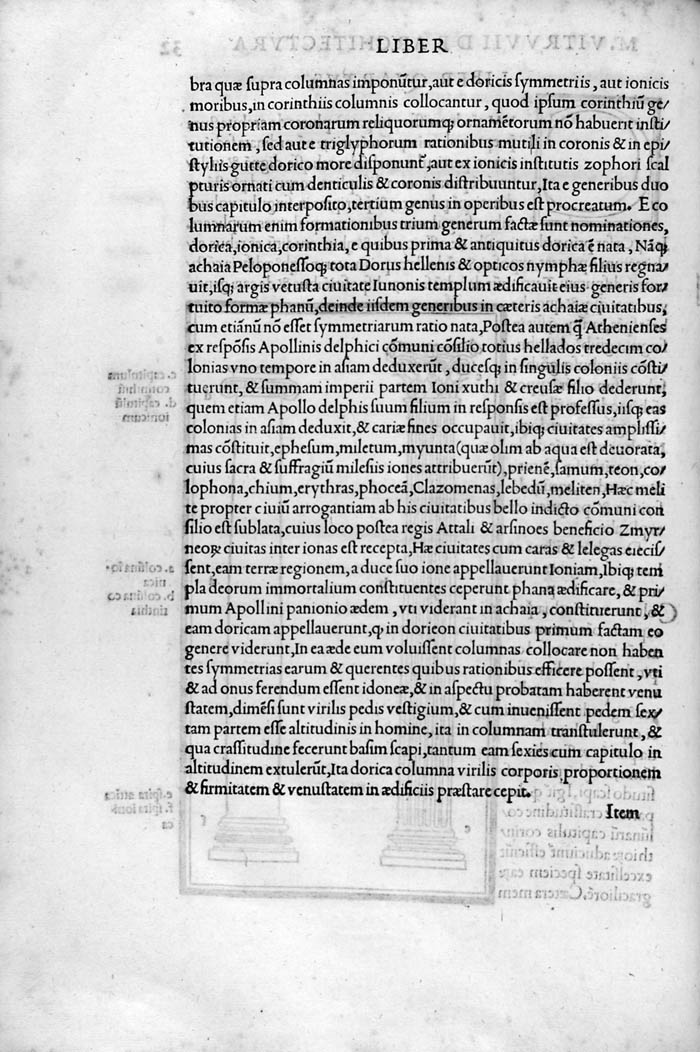 LIBER
bra quæ supra columnas imponũtur, aut e doricis symmetriis, aut ionicis
moribus, in corinthiis columnis collocantur, quod ipsum corinthiũ ge/
nus propriam coronarum reliquorumqꝫ ornamẽtorum nõ habuerit insti/
tutionem, sed aut e triglyphorum rationibus mutili in coronis & in epi/
styliis gutte dorico more disponunt᷑, aut ex ionicis institutis zophori scal
pturis ornati cum denticulis & coronis distribuuntur, Ita e generibus duo
bus capitulo interposito, tertium genus in operibus est procreatum. E co
lumnarum enim formationibus trium generum factæ sunt nominationes,
dorica, ionica, corinthia, e quibus prima & antiquitus dorica ẽ nata, Nãqꝫ
achaia Peloponessoqꝫ tota Dorus hellenis & opticos nymphæ filius regna/
uit, isqꝫ argis vetusta ciuitate Iunonis templum ædificauit eius generis for/
tuito formæ phanũ, deinde iisdem generibus in cæteris achaiæ ciuitatibus,
cum etiãnũ nõ esset symmetriarum ratio nata, Postea autem q̃ Athenienses
ex respõsis Apollinis delphici cõmuni cõsilio totius hellados tredecim co/
lonias vno tempore in asiam deduxerũt, ducesqꝫ in singulis coloniis cõsti/
tuerunt, & summam imperii partem Ioni xuthi & creusæ filio dederunt,
quem etiam Apollo delphis suum filium in responsis est professus, iisqꝫ eas
colonias in asiam deduxit, & cariæ fines occupauit, ibiqꝫ ciuitates amplissi/
mas cõstituit, ephesum, miletum, myunta (quæ olim ab aqua est deuorata,
cuius sacra & suffragiũ milesiis iones attribuerũt), prienẽ, samum, teon, co/
lophona, chium, erythras, phoceã, Clazomenas, lebedũ, meliten, Hæc meli
te propter ciuiũ arrogantiam ab his ciuitatibus bello indicto cõmuni con
silio est sublata, cuius loco postea regis Attali & arsinoes beneficio Zmyr/
neoꝝ ciuitas inter ionas est recepta, Hæ ciuitates cum caras & lelegas eiecis/
sent, eam terræ regionem, a duce suo ione appellauerunt Ioniam, Ibiqꝫ tem
pla deorum immortalium constituentes ceperunt phana ædificare, & pri/
mum Apollini panionio ædem, vti viderant in achaia, constituerunt, &
eam doricam appellauerunt, ꝙ in doricon ciuitatibus primum factam eo
genere viderunt, In ea æde cum voluissent columnas collocare non haben
tes symmetrias earum & querentes quibus rationibus efficere possent, vti
& ad onus ferendum essent idoneæ, & in aspectu probatam haberent venu
statem, dimẽsi sunt virilis pedis vestigium, & cum inuenissent pedem sex/
tam partem esse altitudinis in homine, ita in columnam transtulerunt, &
qua crassitudine fecerunt basim scapi, tantum eam sexies cum capitulo in
altitudinem extulerũt, Ita dorica columna virilis corporis proportionem
& firmitatem & venustatem in ædificiis præstare cepit.
Item